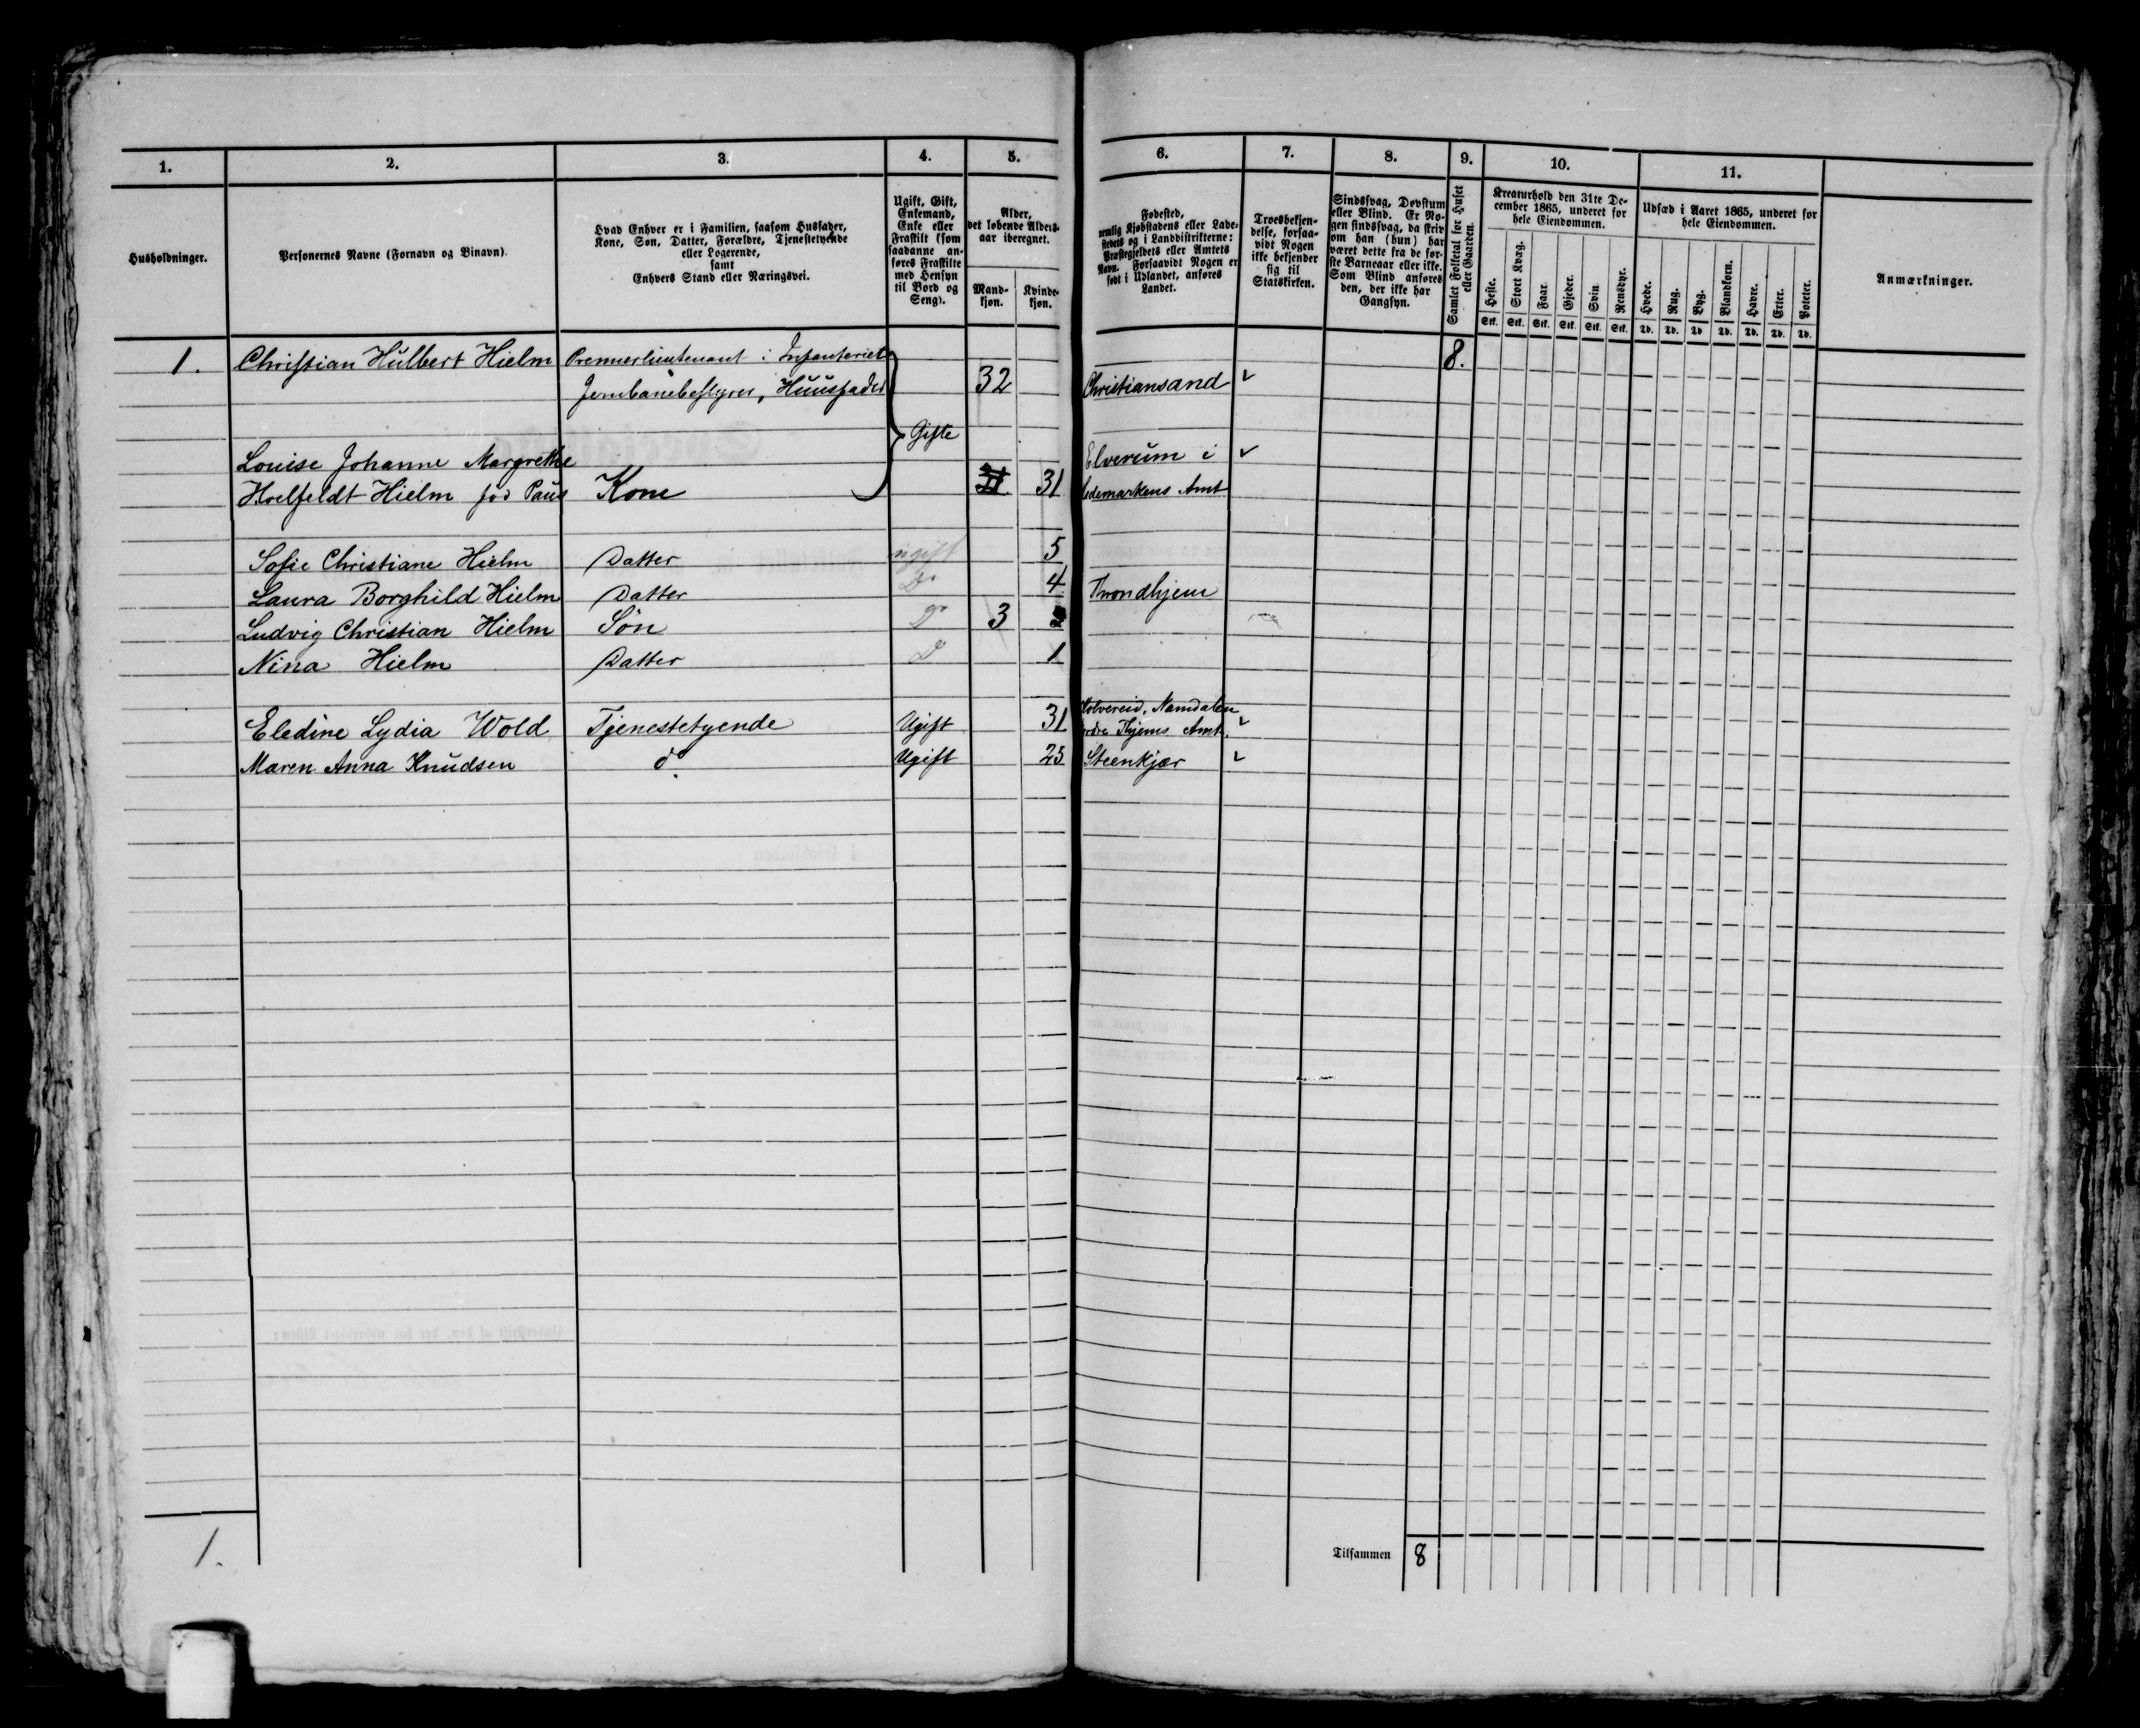 1. 2. 3. 4. 5. 6. 7. 8. 9. 10. 11.
Husholdninger.
Personernes Navne (Fornavn og Binavn).
Hvad Enhver er i Familien, saasom Husfader,
Kone, Søn, Datter, Forældre, Tjenestetyende
eller Logerende,
samt
Enhvers Stand eller Næringsvei.
Ugift, Gift,
Enkemand,
Enke eller
Fraskilt (som
saadanne an-
føres Fraskilte
med Hensyn
til Bord og
Seng).
Alder,
det løbende Alders-
aar iberegnet.
Mand-
kjøn.
Kvinde-
kjøn.
Fødested,
nemlig Kjøbstadens eller Lade-
stedets og i Landdistrikterne:
Præstegjeldets eller Amtets
Navn. Forsaavidt Nogen er
født i Udlandet, anføres
Landet.
Troesbekjen-
delse, forsaa-
vidt Nogen
ikke bekjender
sig til
Statskirken.
Sindssvag, Døvstum
eller Blind. Er No-
gen sindssvag, da skriv
om han (hun) har
været dette fra de før-
ste Barneaar eller ikke.
Som Blind anføres
den, der ikke har
Gangsyn.
Samlet Folketal for Huset
eller Gaarden.
Kreaturhold den 31te De-
cember 1865, underet for
hele Eiendommen.
Heste. Stort Kvæg. Faar. Gjeder. Svin. Rensdyr.
Stk. Stk. Stk. Stk. Stk. Stk.
Udsæd i Aaret 1865, underet for
hele Eiendommen.
Hvede. Rug. Byg. Blandkorn. Havre. Erter. Poteter.
Td. Td. Td. Td. Td. Td. Td.
Anmærkninger.
1. Christian Hulbert Hielm Premierlieutenant i Infanteriet 8.
Jernbanebestyrer, Huusfader 32 Christiansand
Gifte
Louise Johanne Margrethe Elverum i
Hoelfeldt Hielm fød Paus Kone 31 Hedemarkens Amt
Sofie Christiane Hielm Datter ugift 5
Laura Borghild Hielm Datter Do 4 Trondhjem
Ludvig Christian Hielm Søn Do 3
Nina Hielm Datter Do 1
Kolvereid, Namdalen
Eledine Lydia Wold Tjenestetyende Ugift 31 Nordre Thjems Amt.
Maren Anna Knudsen do. Ugift 25 Steenkjær
1. Tilsammen 8